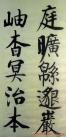 庭曠緜邈巖
岫杳冥治本